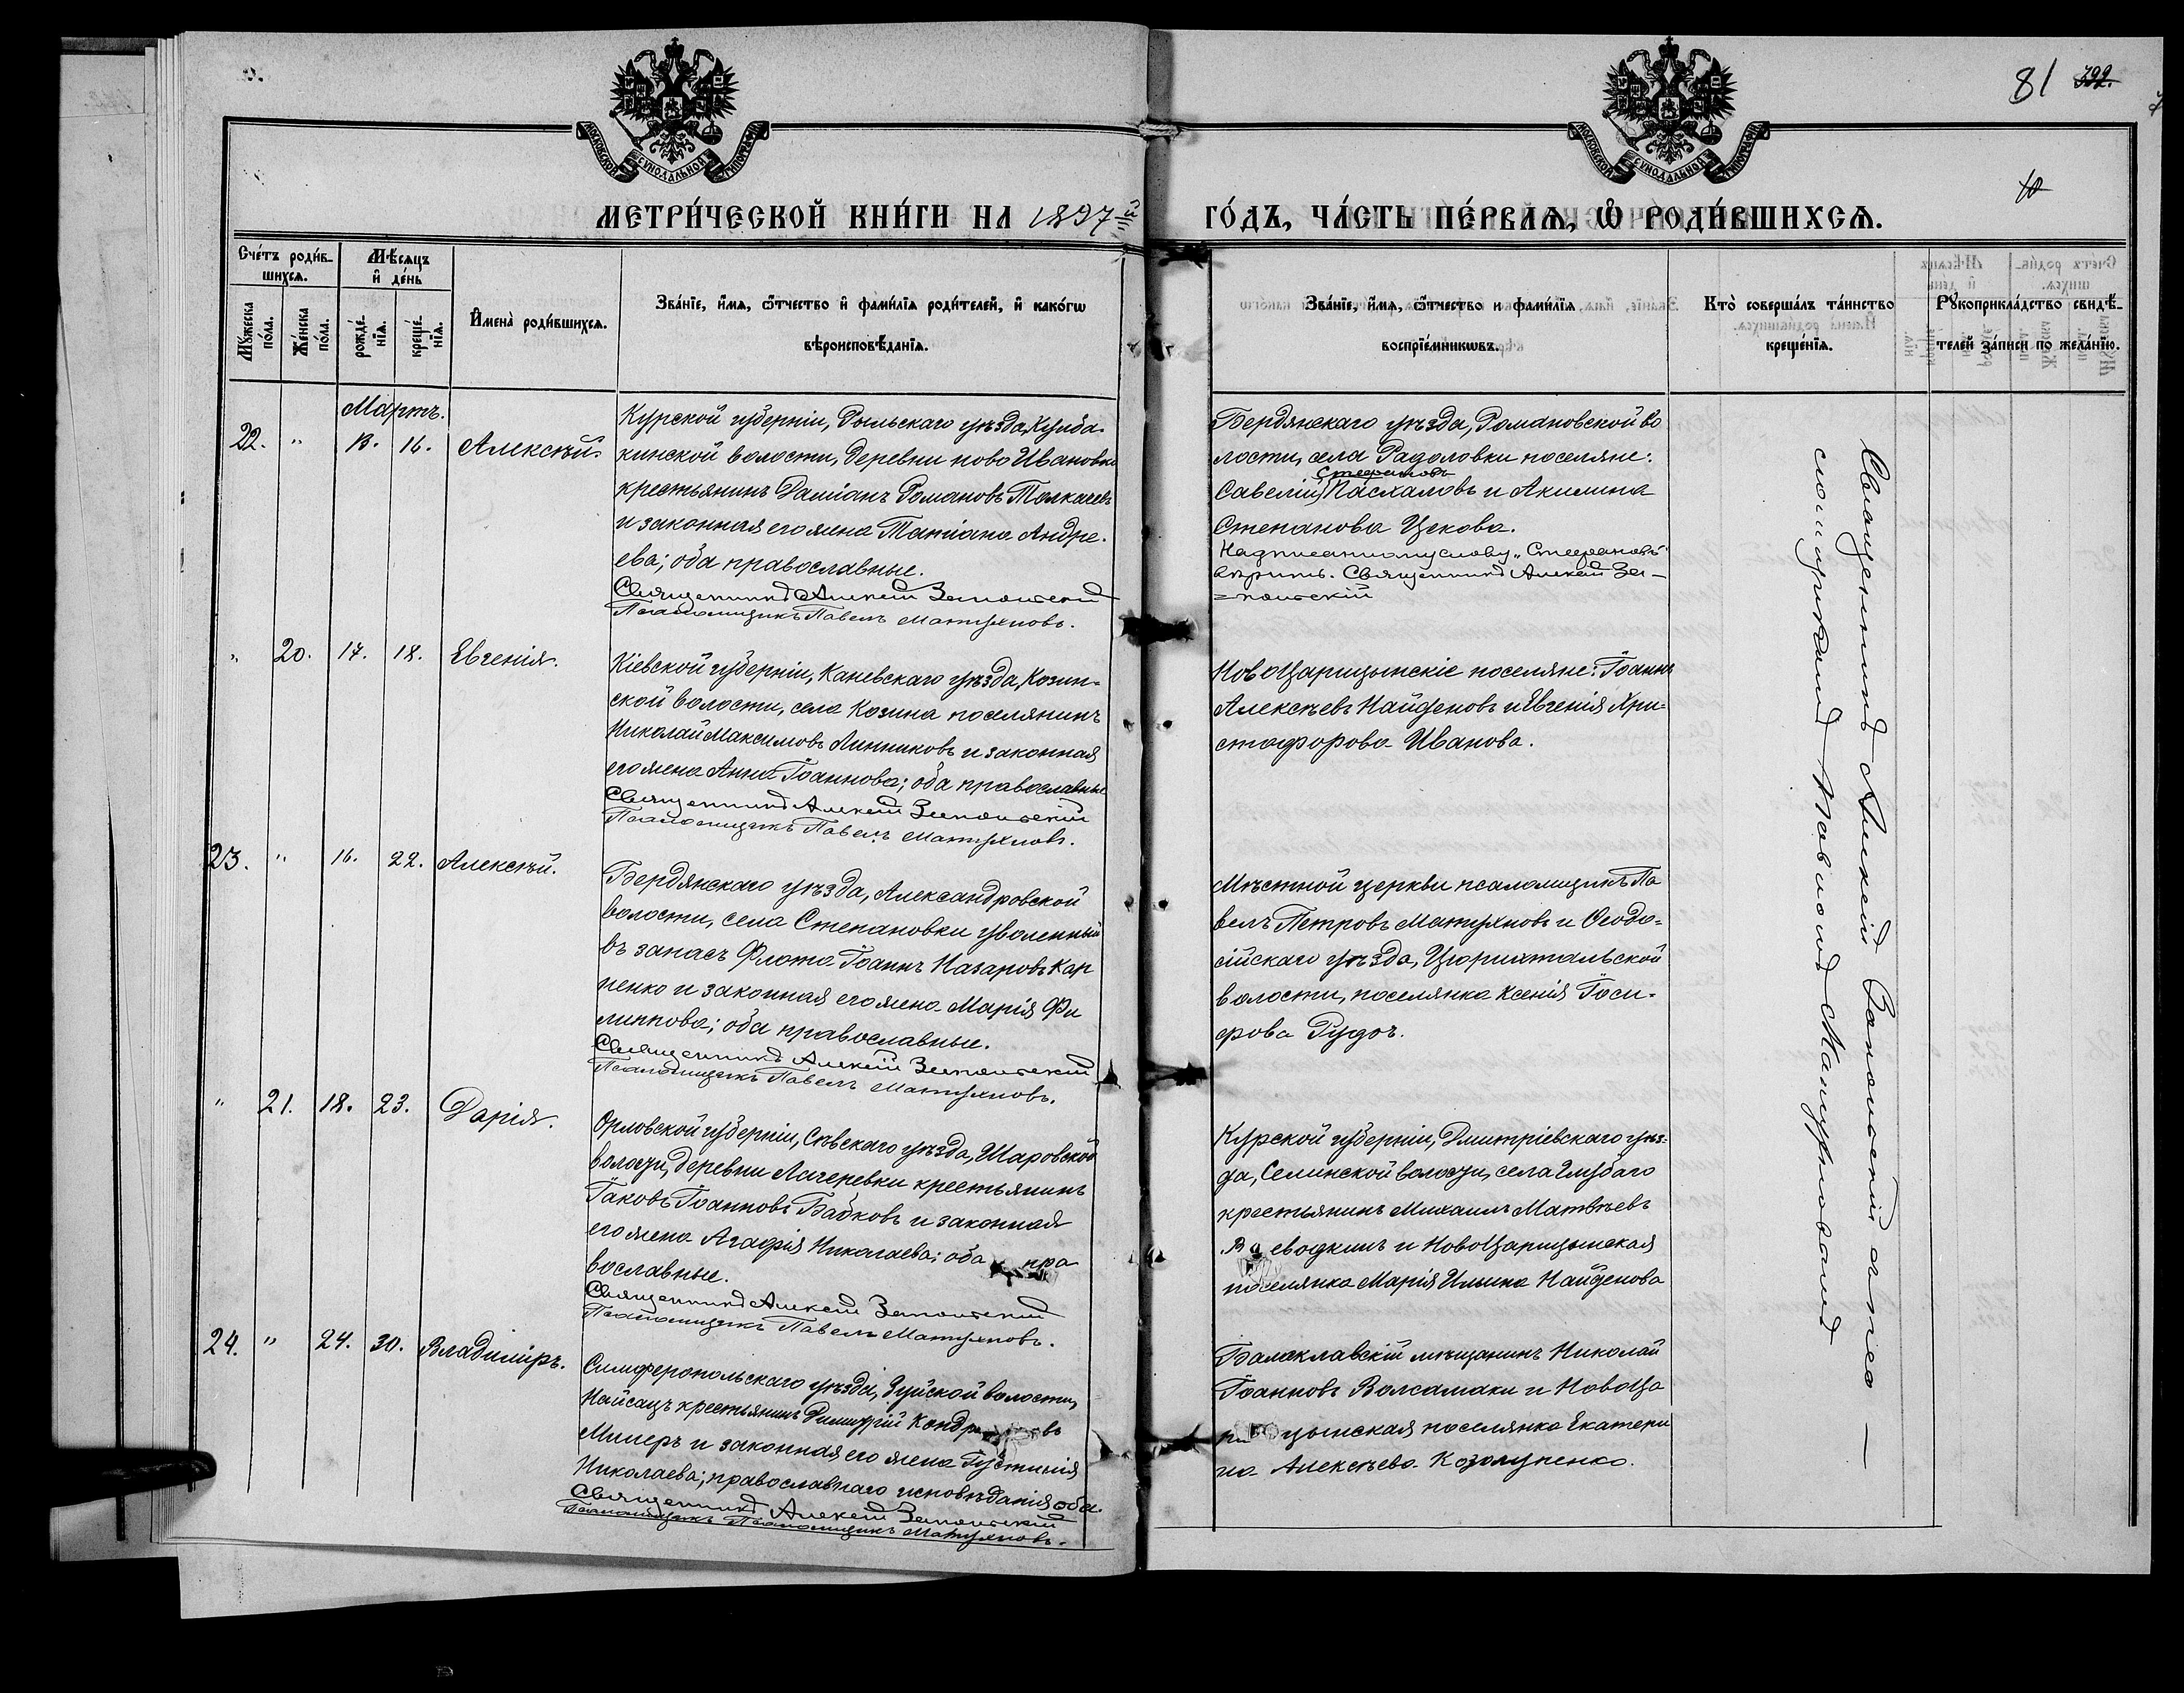 81 322.
10
МОСКОВСКОЙ СѴНОДАЛЬНОЙ ТИПОГРАФІИ
МОСКОВСКОЙ СѴНОДАЛЬНОЙ ТИПОГРАФІИ
МЕТРИ́ЧЕСКОЙ КНИ́ГИ НА 1897 ГО́ДЪ, ЧА́СТЬ ПЕ́РВАѦ, Ѡ҆ РОДИ́ВШИХСѦ.
Сче́тъ роди́в-
шихсѧ.
Мꙋ́жеска по́ла.
Же́нска по́ла.
Мѣ́сѧцъ
и҆ де́нь
рожде́-
нїѧ.
креще́-
нїѧ.
И҆мена̀ роди́вшихсѧ.
Зва́нїе, и҆́мѧ, ѻ҆́тчество и҆ фами́лїѧ роди́телей, и҆ како́гѡ
вѣроисповѣ́данїѧ.
Зва́нїе, и҆́мѧ, ѻ҆́тчество и фами́лїѧ
воспрїе́мникѡвъ.
Кто̀ соверша́лъ та́инство
креще́нїѧ.
Рꙋкоприкла́дство свидѣ́-
телей за́писи по жела́нїю.
Мартъ.
22. " 13. 16. Алексѣй.
Курской губерніи, Рыльскаго уѣзда, Кулба-
кинской волости, деревни ново Ивановки
крестьянинъ Даміанъ Романовъ Толкачевъ
и законная его жена Татіана Андре-
ева; оба православные.
Священникъ Алексій Запольскій
Псаломщикъ Павелъ Матухновъ.
Бердянскаго уѣзда, Романовской во
лости, села Радоловки поселяне:
Стефановъ
Савелій Пасхаловъ и Акилина
Степанова Цекова.
Надписанному слову „Стефановъ"
вѣрить. Священникъ Алексій За-
=польскій
" 20. 17. 18. Евгенія.
Кіевской губерніи, Каневскаго уѣзда, Козин-
ской волости, села Козина поселянинъ
Николай Максимовъ Линниковъ и законная
его жена Анна Іоаннова; оба православные
Священникъ Алексій Запольскій
Псаломщикъ Павелъ Матухновъ.
НовоЦарицынскіе поселяне: Іоаннъ
Алексѣевъ Найденовъ и Евгенія Хри-
стофорова Иванова.
23. " 16. 22. Алексѣй.
Бердянскаго уѣзда, Александровской
волости, села Степановки уволенный
въ запасъ Флота Іоаннъ Назаровъ Кар
пенко и законная его жена Марія Фи
липпова; оба православные.
Священникъ Алексій Запольскій
Псаломщикъ Павелъ Матухновъ.
Мѣстной церкви псаломщикъ Па
велъ Петровъ Матухновъ и Ѳеодо-
сійскаго уѣзда, Цюрихтальской
волости, поселянка Ксенія Іоси-
фова Рудоч.
" 21. 18. 23. Дарія.
Орловской губерніи, Сѣвскаго уѣзда, Шаровской
волости, деревни Лагеревки крестьянинъ
Іаковъ Іоанновъ Бабковъ и законная
его жена Агафія Николаева; оба пра
вославные.
Священникъ Алексій Запольскій
Псаломщикъ Павелъ Матухновъ.
Курской губерніи, Дмитріевскаго уѣз-
да, Селинской волости, села Глубаго
крестьянинъ Михаилъ Матвѣевъ
Воеводкинъ и НовоЦарицынская
поселянка Марія Ильина Найденова
24. " 24. 30. Владиміръ.
Симферопольскаго уѣзда, Зуйской волости,
Нейсацъ крестьянинъ Димитрій Кондр въ
Миллеръ и законная его жена Іустинія
Николаева; православнаго исповѣданія оба.
Священникъ Алексій Запольскій
Псаломщикъ Псаломщикъ Матухновъ.
Балаклавскій мѣщанинъ Николай
Іоанновъ Валсамаки и НовоЦа
рицынская поселянка Екатери
на Алексѣева Козолупенко.
Священникъ Алексій Запольскій съ пса
ломщикомъ Павломъ Матухновымъ